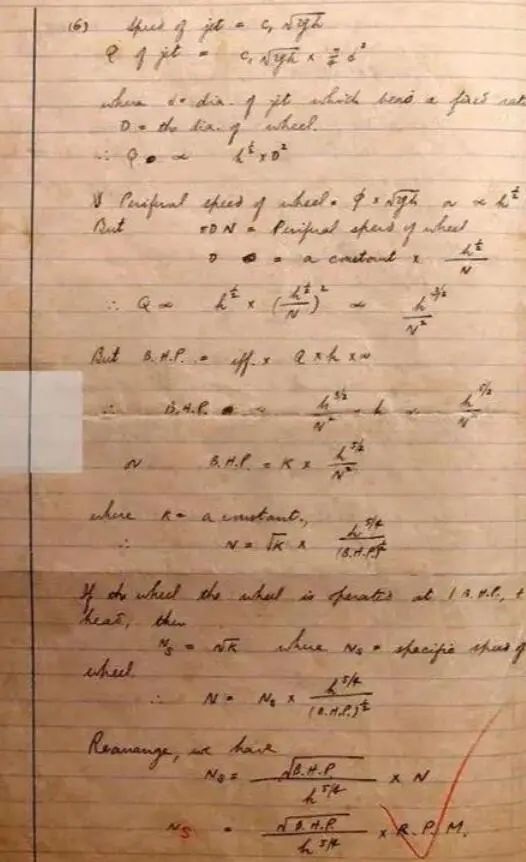 (6) Speed of jet = c, √2gh
Q of jet = c, √2gh × π/4 d²
where d = dia. of jet which bears a fixed
D = the dia. of wheel.
∴ Q ∝ h^½ × D²
Periferal speed of wheel = ϕ × √2gh or ∝ h^½
But πDN = Periferal speed of wheel
D = a constant × h^½/N
∴ Q ∝ h^½ × (h^½/N)² ∝ h^3/2/N²
But B.H.P. = eff. × Q × h × w
∴ B.H.P. ∝ h^3/2/N² × h ∝ h^5/2/N²
or B.H.P. = K × h^5/2/N²
where K = a constant.,
∴ N = √K × h^5/4/(B.H.P.)^½
If the wheel the wheel is operated at 1 B.H.P., +
head, then
Ns = √K where Ns = specific speed of
wheel.
∴ N = Ns × h^5/4/(B.H.P.)^½
Rearrange, we have
Ns = √B.H.P./h^5/4 × N
Ns = √B.H.P/h^5/4 × R.P.M.